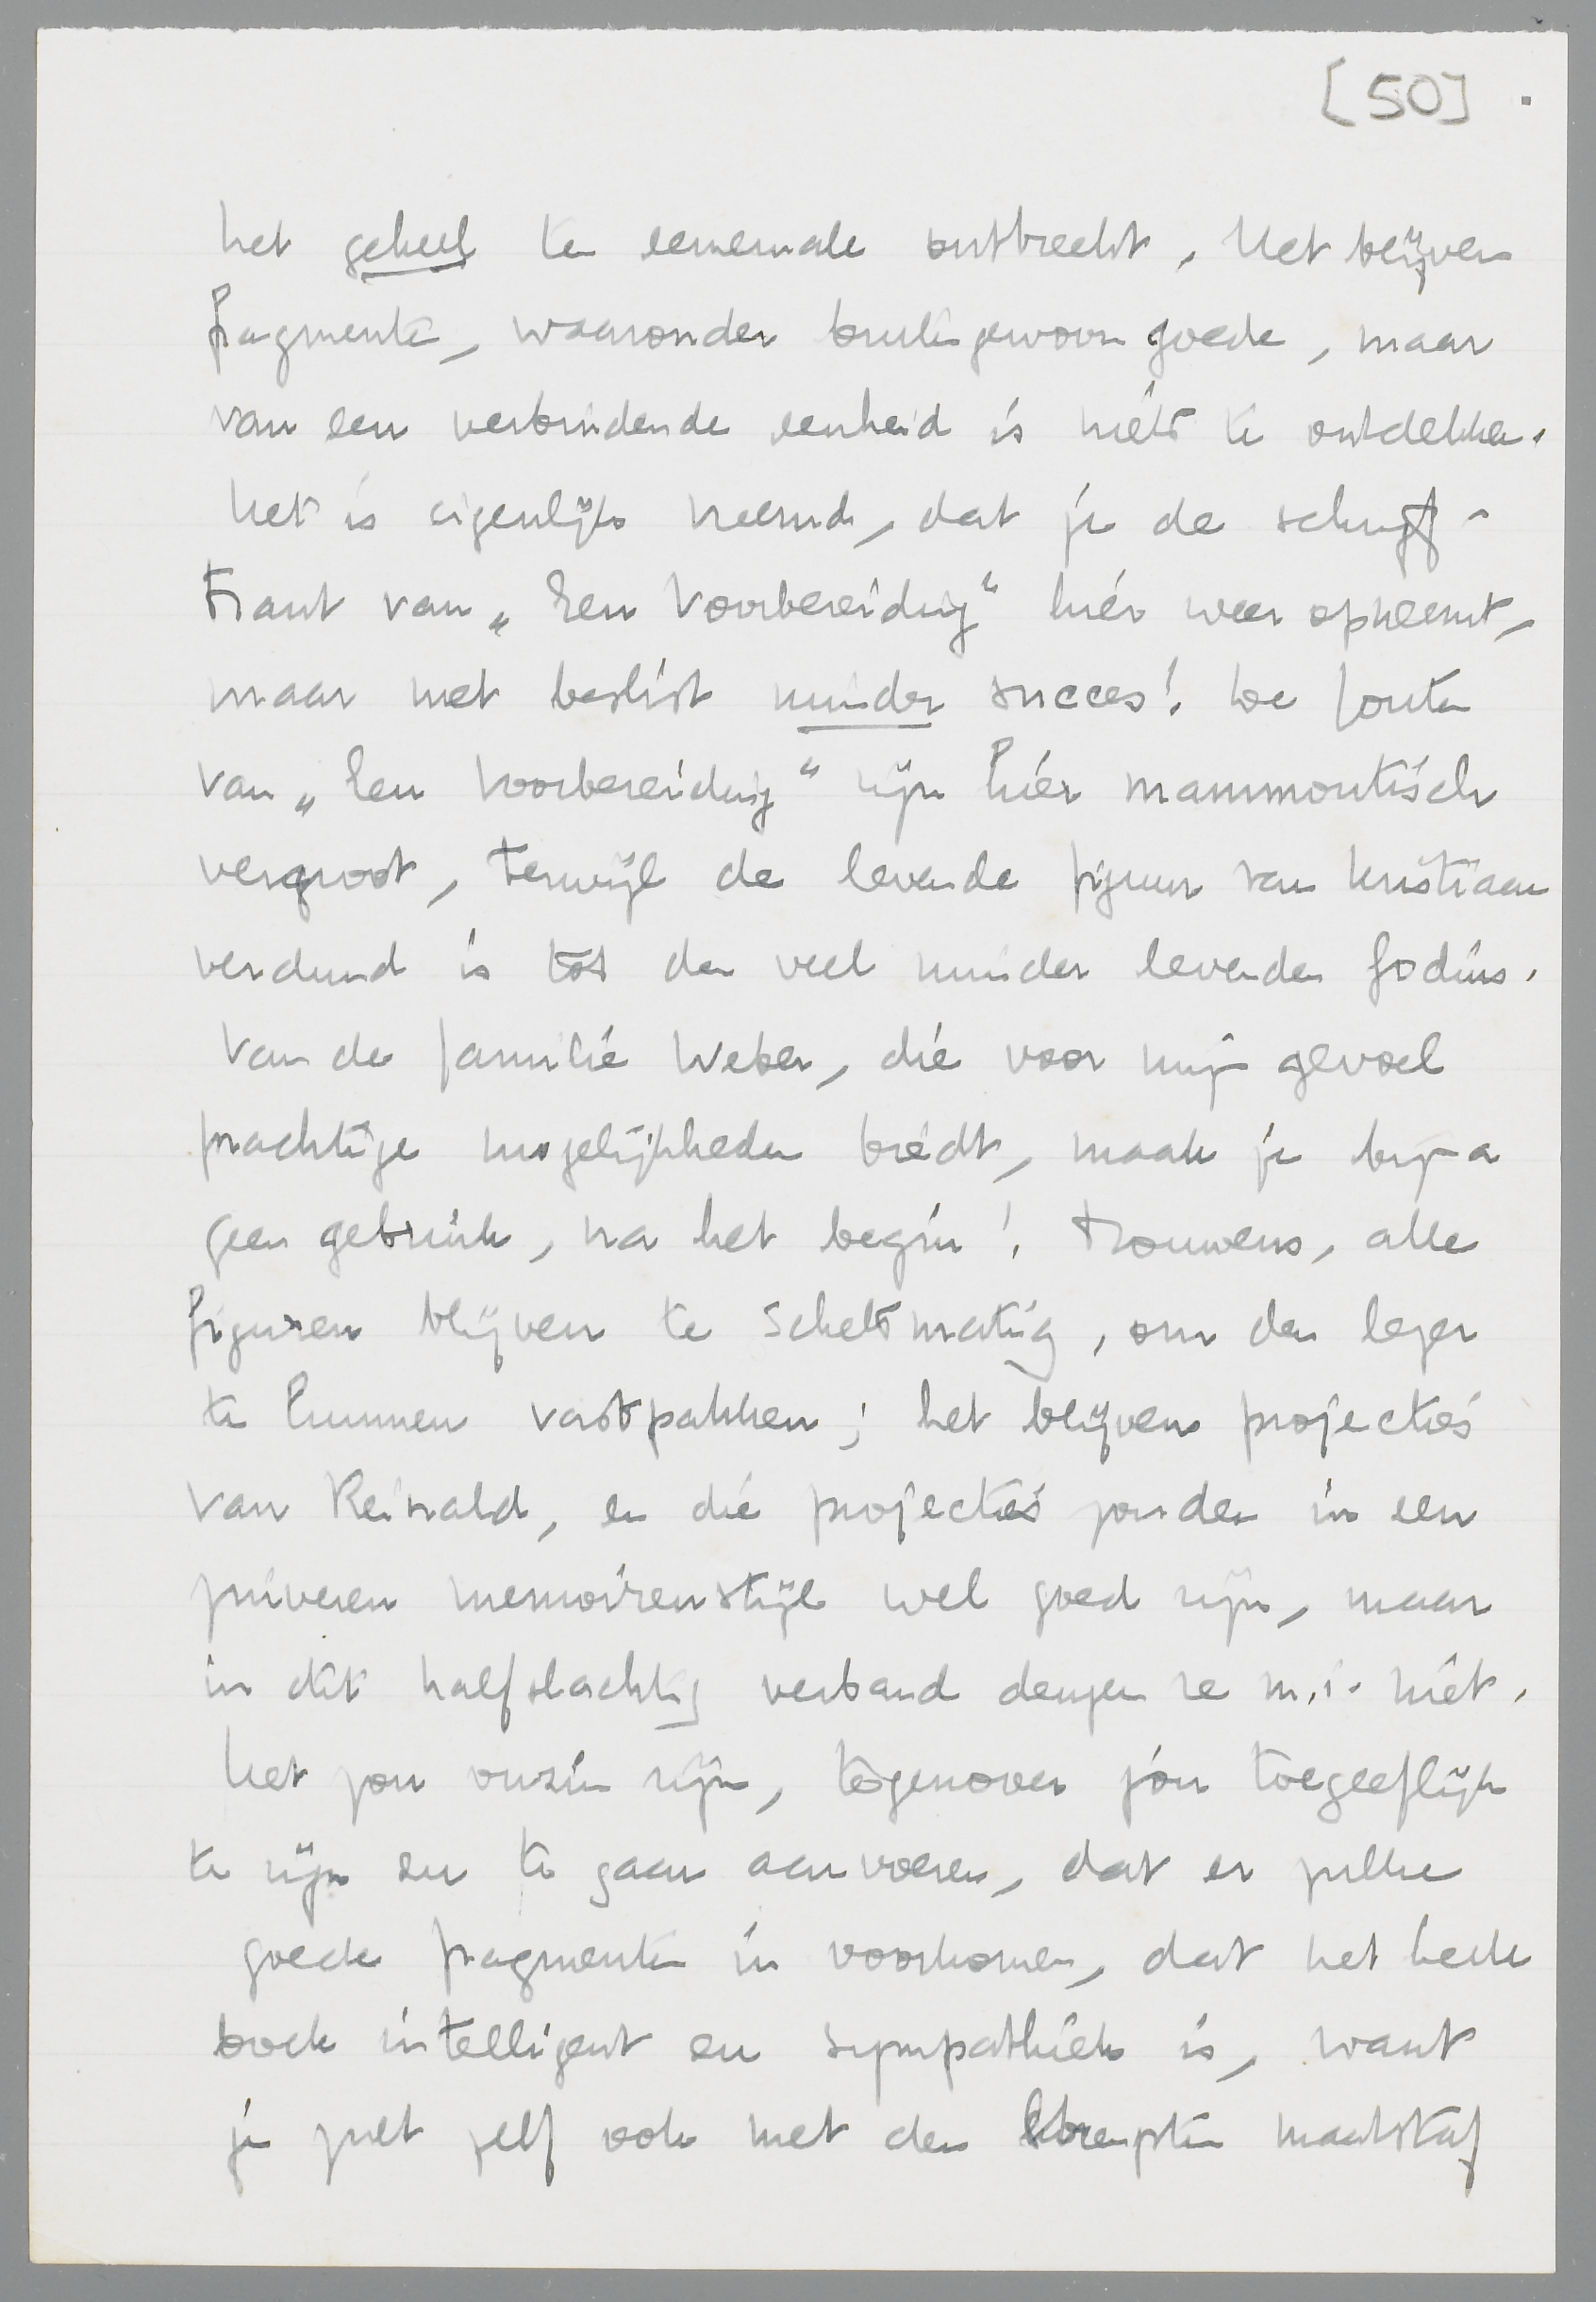 [50]
het geheel ten eenenmale ontbreekt. Het blijven
fragmenten, waaronder buitengewoon goede, maar
van een verbindende eenheid is niets te ontdekken.
Het is eigenlijk vreemd, dat je de schrijf-
trant van „Een Voorbereiding" hier weer opneemt,
maar met beslist minder succes! De fouten
van „Een Voorbereiding" zijn hier mammoutisch
vergroot, terwijl de levende figuur van Kristiaan
verdund is tot den veel minder levenden Godius.
Van de familie Weber, die voor mijn gevoel
prachtige mogelijkheden biedt, maak je bijna
geen gebruik, na het begin! Trouwens, alle
figuren blijven te schetsmatig, om den lezer
te kunnen vastpakken; het blijven projecties
van Reinald, en die projecties zouden in een
zuiveren memoirenstijl wel goed zijn, maar
in dit halfslachtig verband deugen ze m.i. niet.
Het zou onzin zijn, tegenover jóu toegeeflijk
te zijn en te gaan aanvoeren, dat er zulke
goede fragmenten in voorkomen, dat het heele
boek intelligent en sympathiek is, want
je zult zelf ook met den strengsten maatstaf